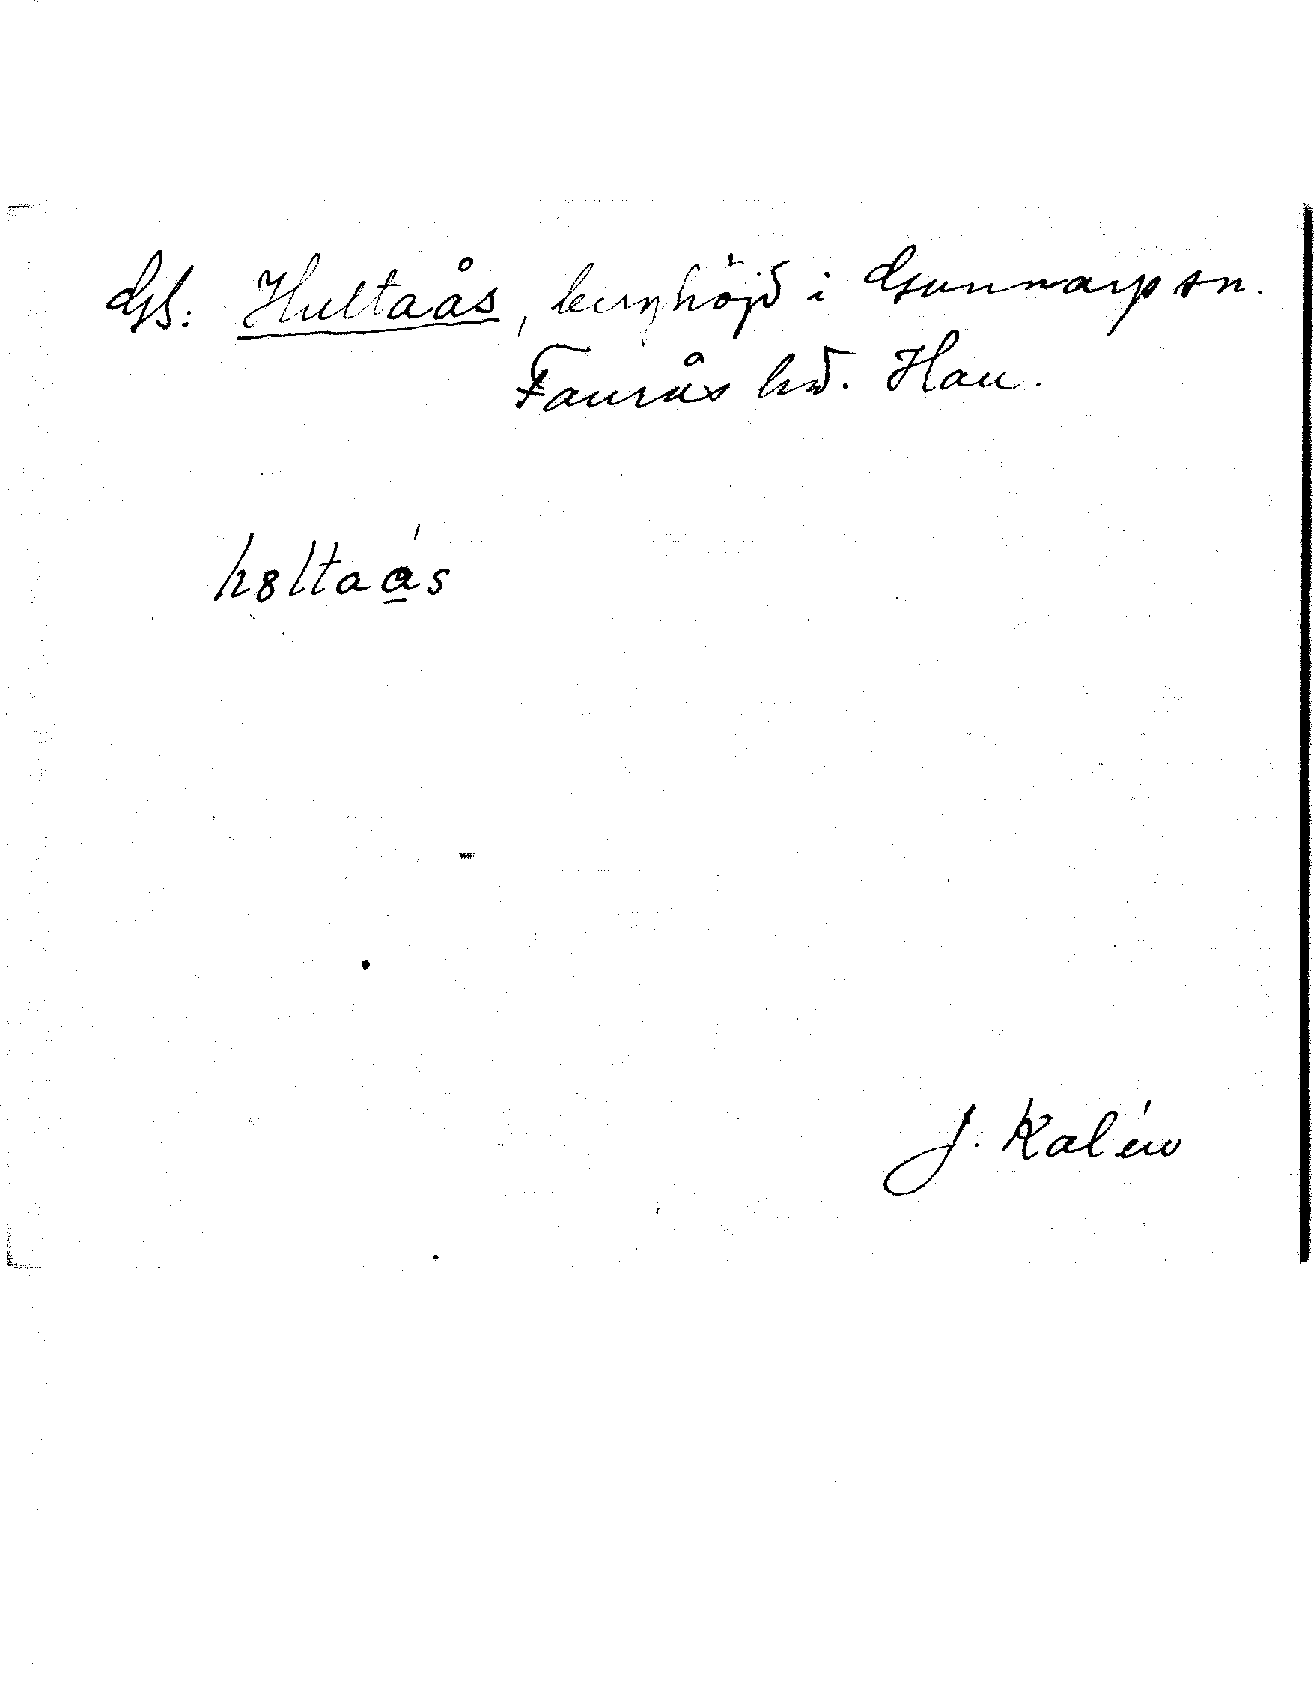 GB: Hultaås, berghöjd i Gunnarp sn.
Faurås hd. Hall.
h8ltaås
J. Kalén